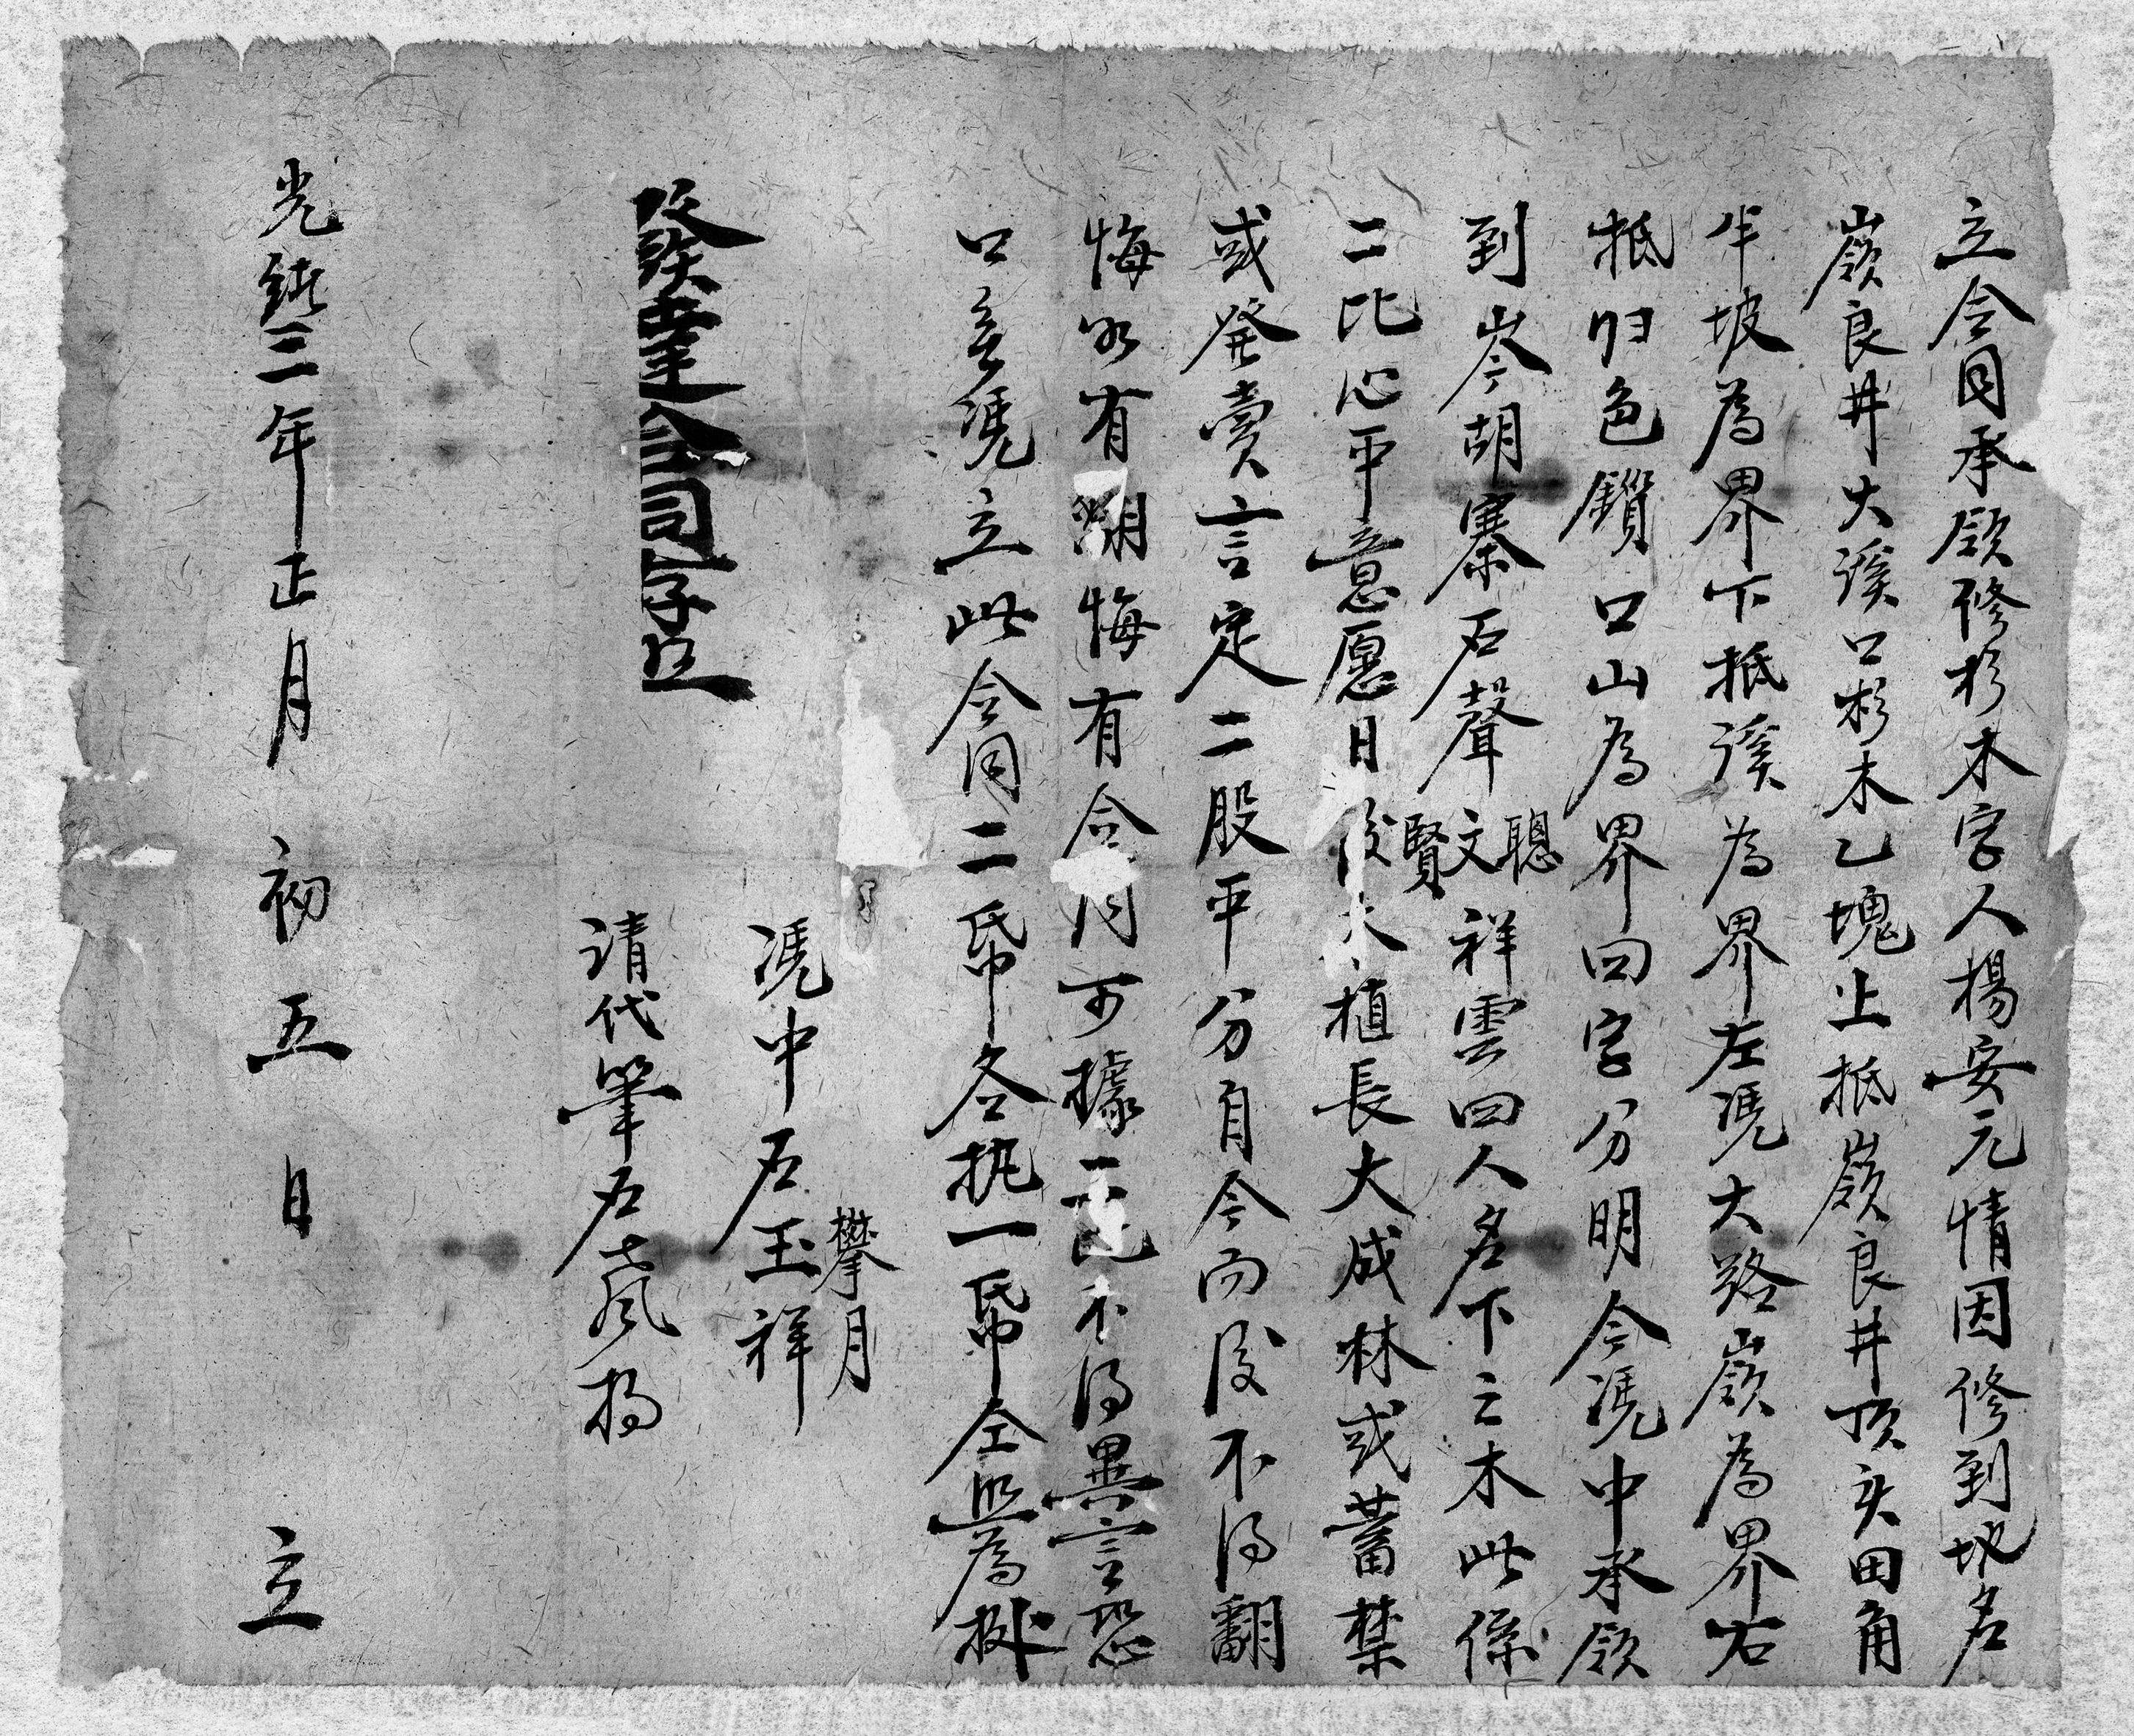 立合同承領修杉木字人楊安元情因修到地名
嶺良井大溪口杉木乙塊上抵嶺良井頂头田角
半坡為界下抵溪為界左凴大路嶺為界右
抵归色鑽口山為界四字分明今凴中承領
到岑胡寨石聲文聰賢祥雲四人名下之木此係
二比心平意愿日後木植長大成林或蓄禁
或発賣言定二股平分自今而後不得翻
悔如有翻悔有合同可據一邊不得異言恐
口無凴立此合同二帋各执一帋仝照為㨿
凴中石玉攀祥月
發達合同字為
请代筆石高風揚
光緒三年正月初五日立